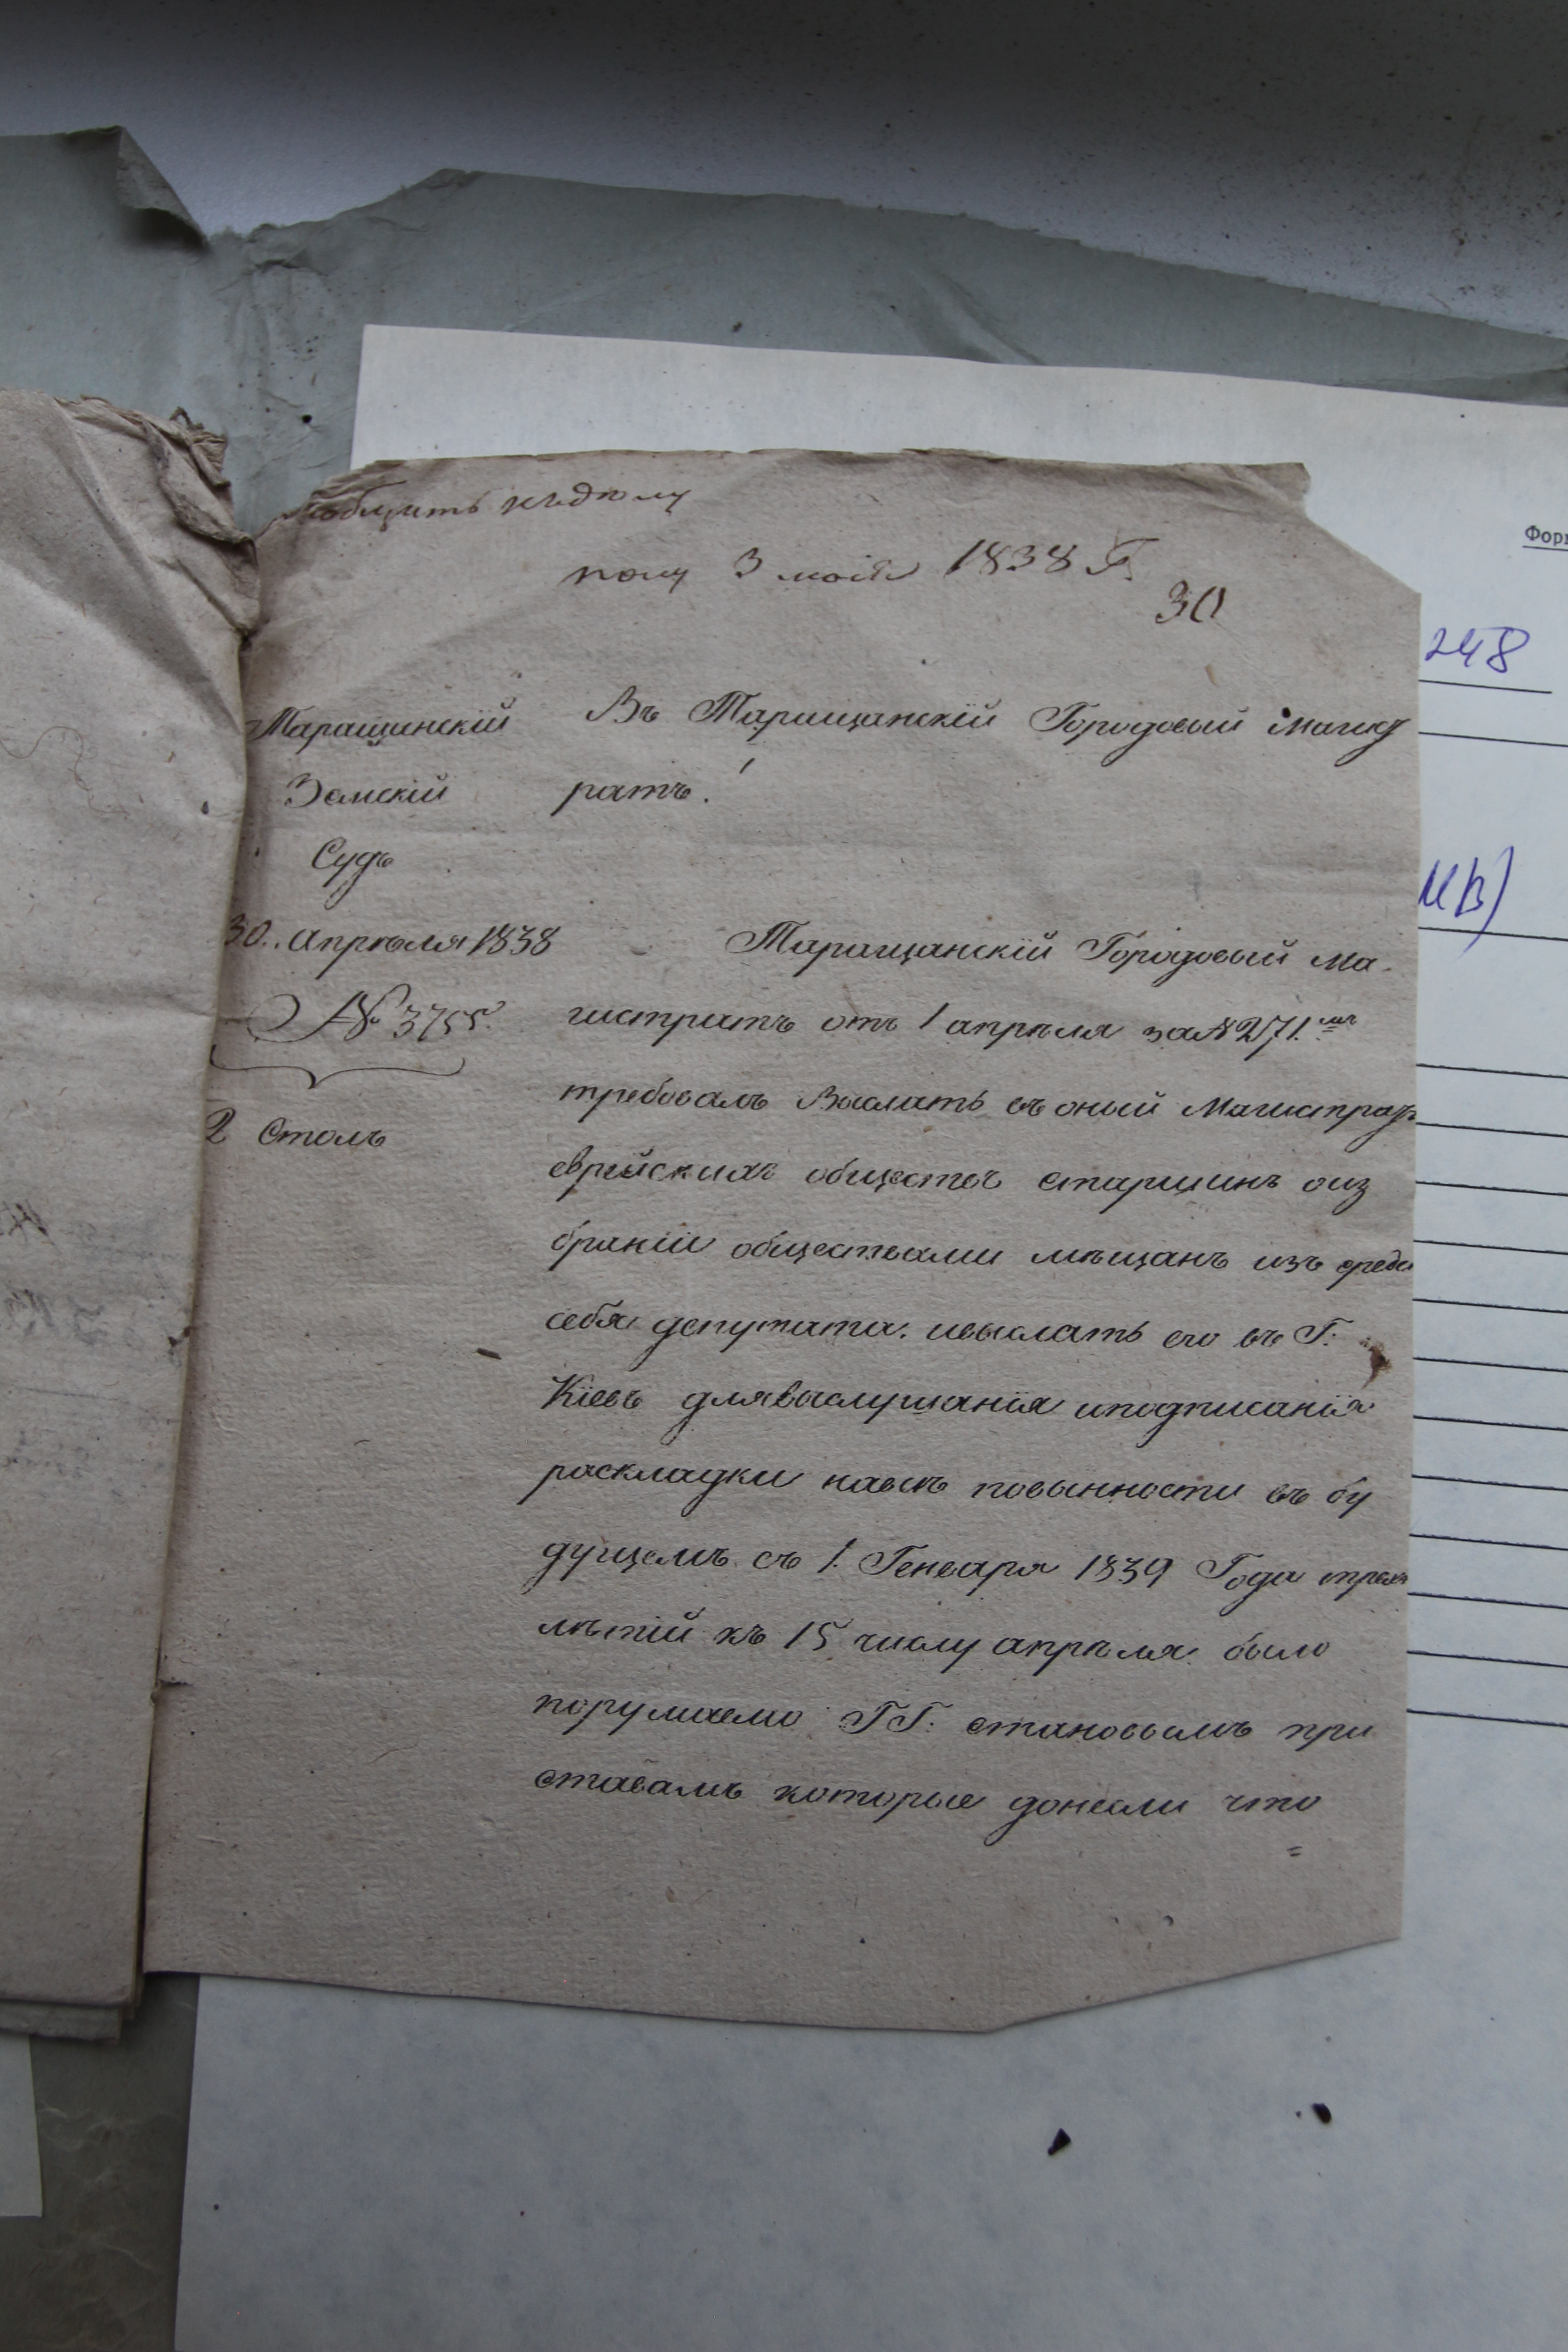 пріобщить къ дѣлу
полу 3 маія 1838 Г.
30
Таращинскій
Земскій
Судъ
30. апрѣля 1838
№ 3755.
2 Столъ
Въ Таращанскій Городовый Магист
ратъ!
Таращанскій Городовый Ма-
гистратъ отъ 1 апрѣля за № 271.мъ
требовалъ Выслать въ оный Магистрат
еврейскихъ обществъ старшинъ о из
браніи обществами мѣщанъ изъ среды
себя депутата. и выслать его въ Г:
Кіевъ для выслушанія и подписанія
раскладки на всѣ повынности въ бу
дущемъ съ 1. Генваря 1839 Года трех
лѣтій къ 15 числу апрѣля было
поручаемо ГГ: становымъ при
ставамъ которые донесли что
=
Фор
248
ив)